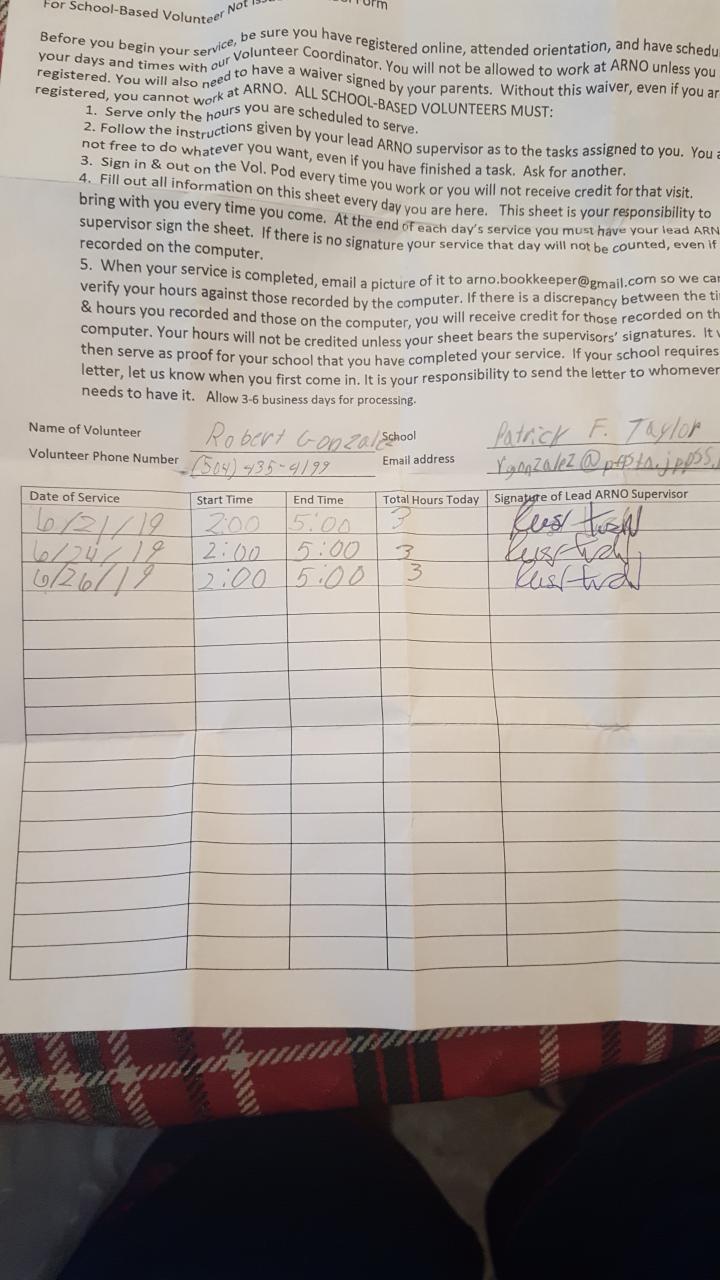 For School-Based Volunteer Not
Before you begin your service, be sure you have registered online, attended orientation, and have schedu
your days and times with our Volunteer Coordinator. You will not be allowed to work at ARNO unless you
registered. You will also need to have a waiver signed by your parents. Without this waiver, even if you ar
registered, you cannot work at ARNO. ALL SCHOOL-BASED VOLUNTEERS MUST:
1. Serve only the hours you are scheduled to serve.
2. Follow the instructions given by your lead ARNO supervisor as to the tasks assigned to you. You a
not free to do whatever you want, even if you have finished a task. Ask for another.
3. Sign in & out on the Vol. Pod every time you work or you will not receive credit for that visit.
4. Fill out all information on this sheet every day you are here. This sheet is your responsibility to
bring with you every time you come. At the end of each day's service you must have your lead ARN
supervisor sign the sheet. If there is no signature your service that day will not be counted, even if
recorded on the computer.
5. When your service is completed, email a picture of it to arno.bookkeeper@gmail.com so we can
verify your hours against those recorded by the computer. If there is a discrepancy between the ti
& hours you recorded and those on the computer, you will receive credit for those recorded on th
computer. Your hours will not be credited unless your sheet bears the supervisors' signatures. It w
then serve as proof for your school that you have completed your service. If your school requires
letter, let us know when you first come in. It is your responsibility to send the letter to whomever
needs to have it. Allow 3-6 business days for processing.
Name of Volunteer Robert Gonzalez School Patrick F. Taylor
Volunteer Phone Number (504) 435-4199 Email address rgonzalez@pftsta.jppss.
Date of Service Start Time End Time Total Hours Today Signature of Lead ARNO Supervisor
6/21/19 2:00 5:00 3
6/24/19 2:00 5:00 3
6/26/19 2:00 5:00 3